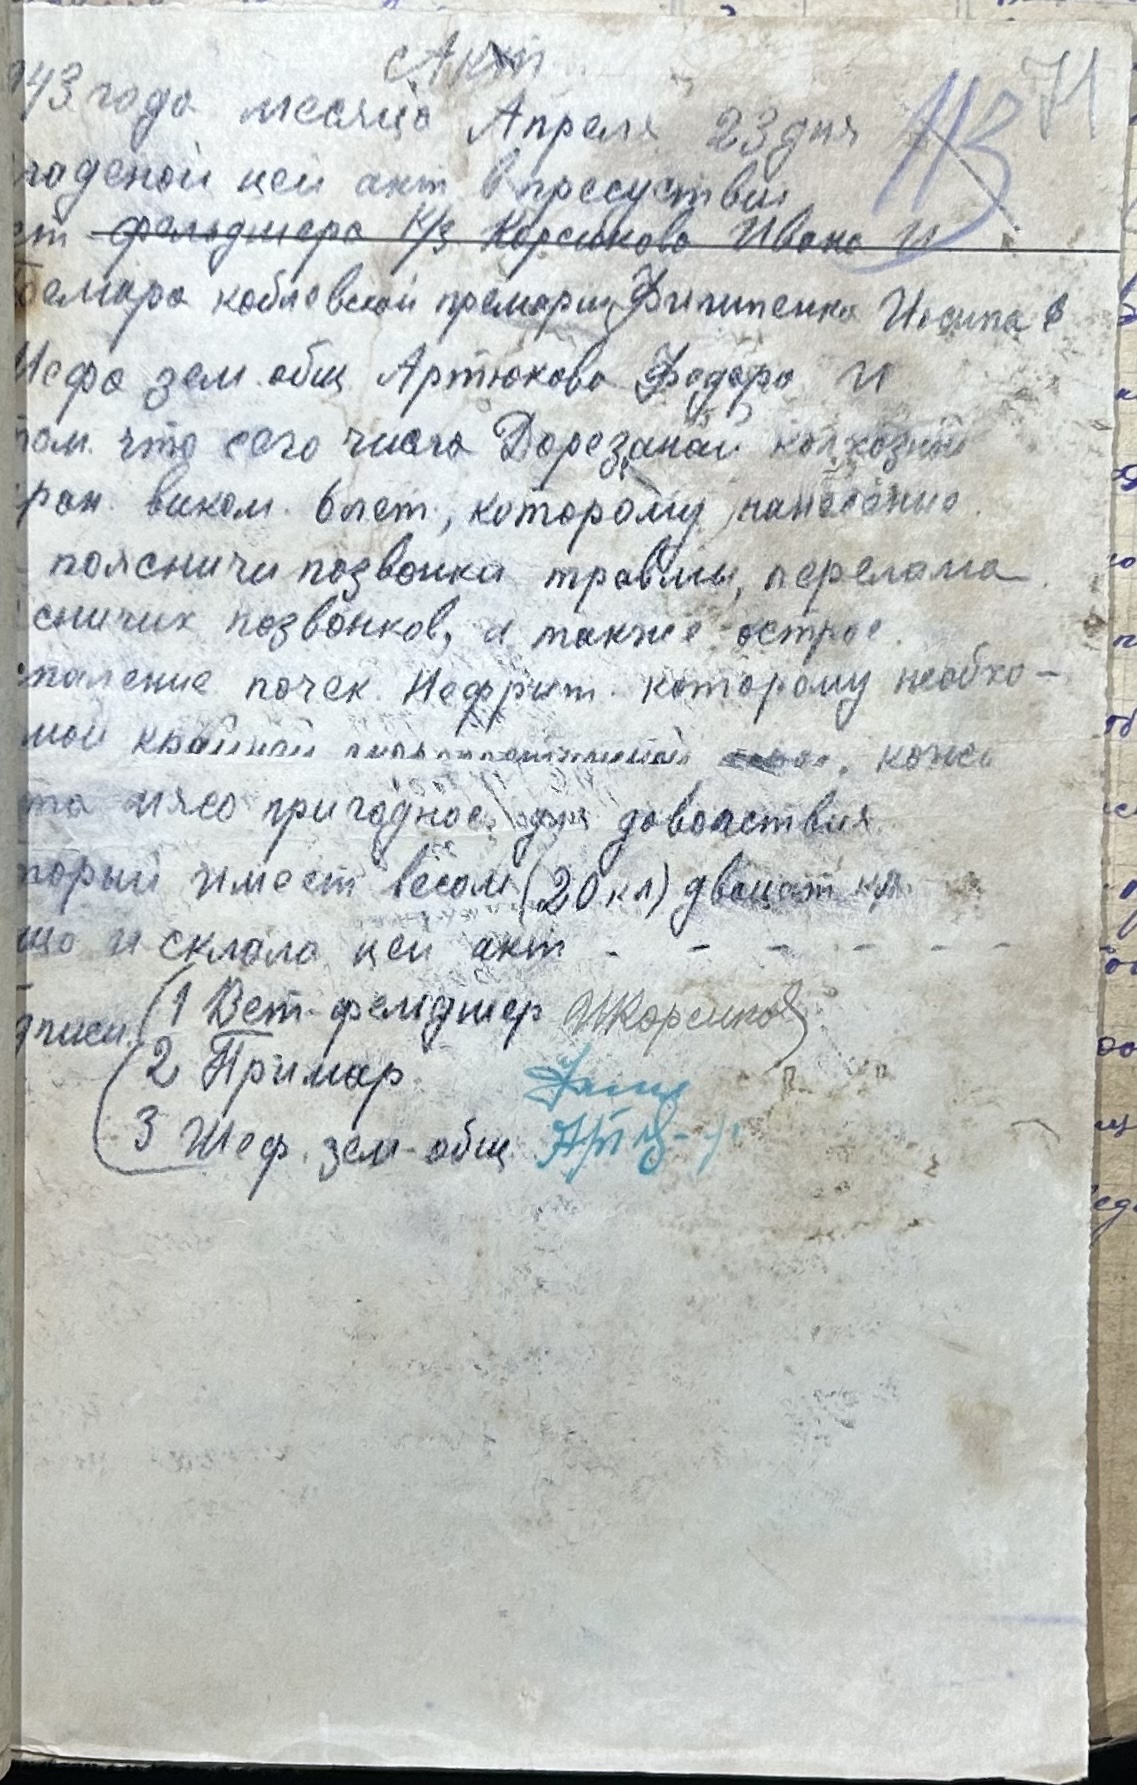 Акт
71
113
943 года месяца Апреля 23 дня
ладеной цей акт в пресуствии
ет фельдшера К/з Корсикова Ивана И
емара коблевской премарии Филипенка Иосипа в
Шефа зем. общ Артюхова Фодора И
том. что сего числа Дорезаной колхозний
ран виком. 6 лет, которому нанесение
поясничи позвонки травмы, перелама
сничих позвонков, а также острое
спаление почек Нефрит. которому необхо-
мой крайней кожа
та мясо пригодное для доволствия
торый имеет весом (20 кл) двацат кл.
що и склала цей акт - - - - - - -
дписи (1 Вет-фельдшер ИКорсиков
2 Примар
3 Шеф. зем-общ